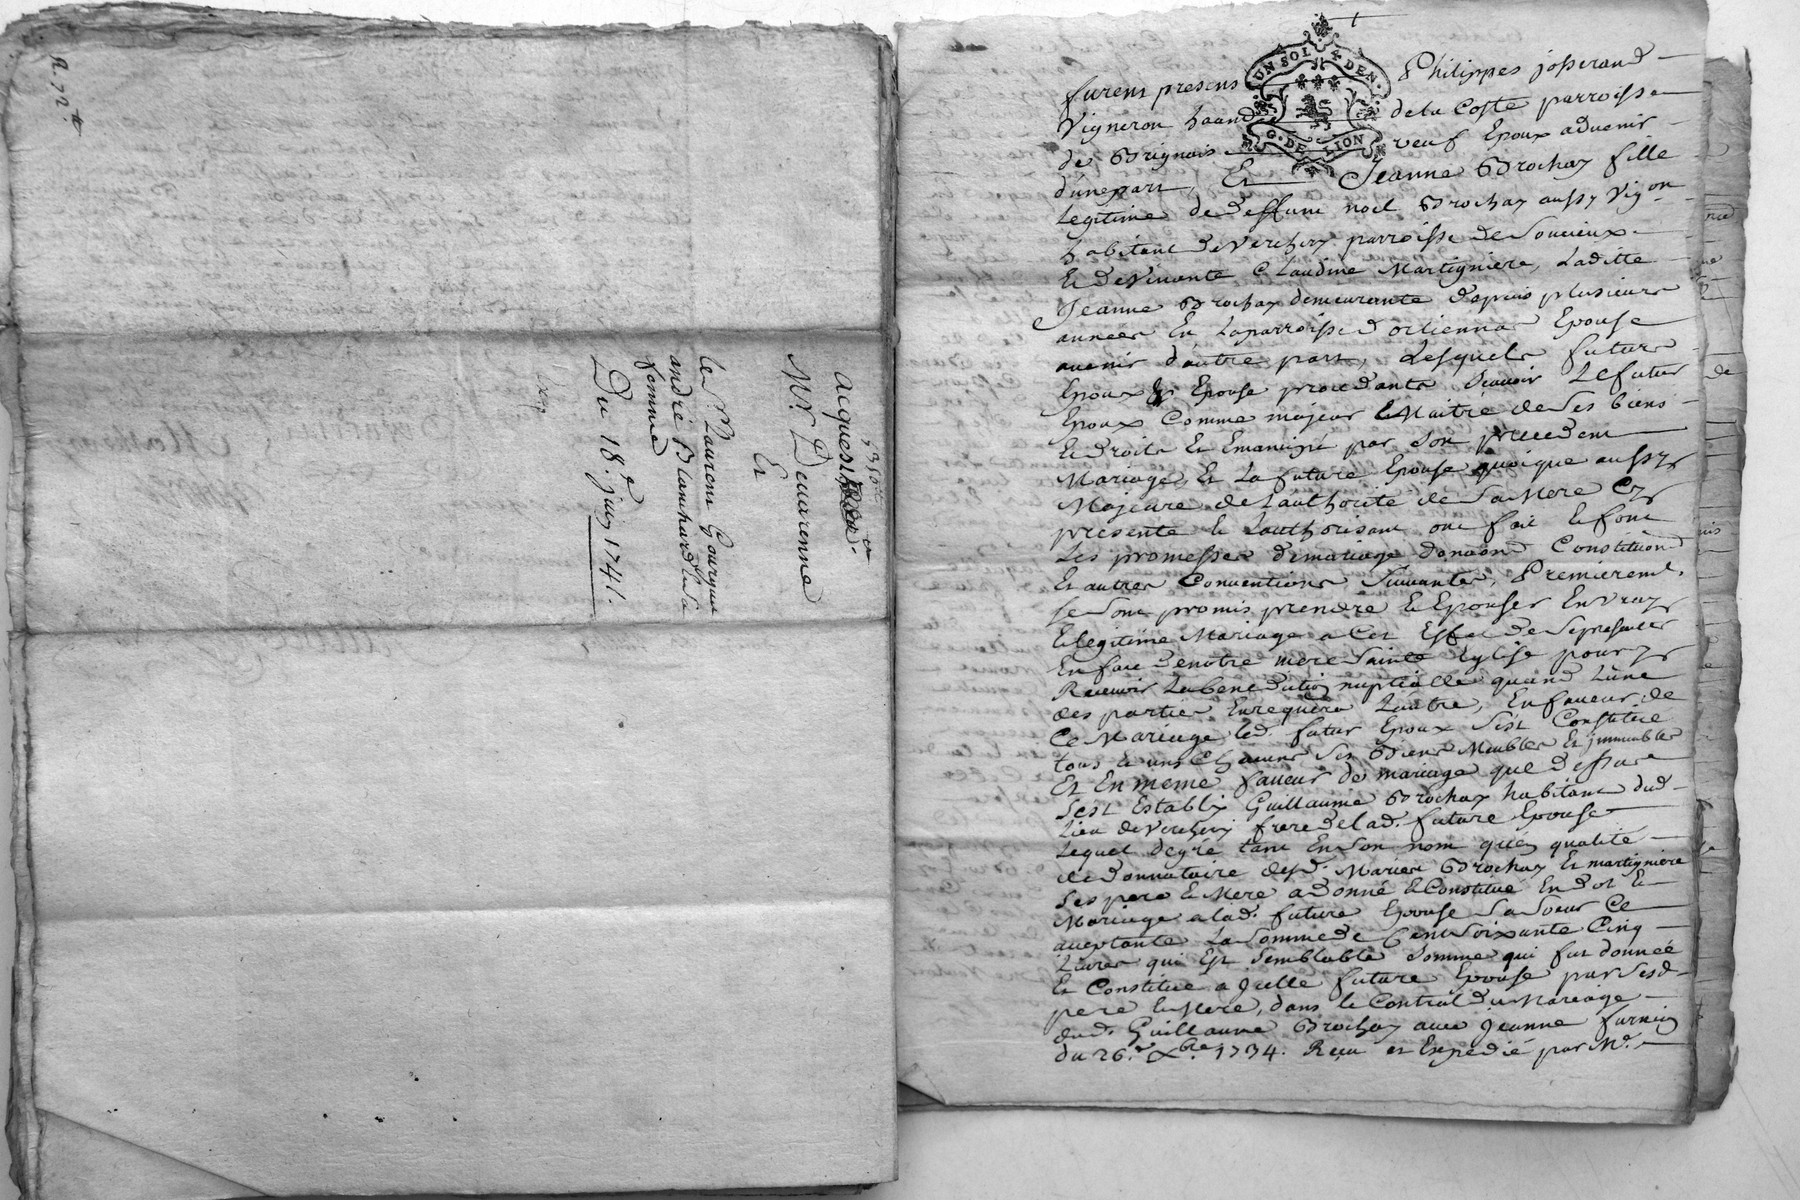 R. 72.
acquest
Mr. Devarenne
Et
le Sr. Laurent Gourguet
andré Blanchard Et sa
femme
Du 18.e juin 1741.
UN SOL 4 DEN.
G. DE LION
furent presens Philippes josserand
Vigneron habitant de la Coste parroisse
de Brignais veuf Epoux advenir
d'unepart, Et Jeanne Brochay fille
Legitime de deffunt noel Brochay aussy Vigon
habitant de Verchery parroisse de Soucieux
Et de Vivante Claudine Martigniere, Laditte
Jeanne Brochay demeurante depuis plusieurs
années En Laparroisse d'orliennas Epouse
avenir d'autre part, Lesquels futurs
Epoux Et Epouse procedants Scavoir Le futur
Epoux Comme majeur Et Maitre de Ses biens
Et droits Et Emancipé par Son precedent
Mariage, Et La future Epouse quoique aussy
Majeure de L'authorité de Sa Mere Cy
presente Et Lauthorisant ont fait Et font
Les promesses de mariage donaon Constituon
Et autres Conventions Suivantes, Premierement,
se Sont promis prendre Et Epouser En Vray
Et legitime Mariage a Cet Effet de Se presenter
En face de notre mere Sainte Eglise pour y
Recevoir La benediction nuptialle quand L'une
des parties En requera L'autre, En faveur de
Ce Mariage led. futur Epoux S'est Constitué
tous Et uns Chacuns Ses Biens Meubles Et jmmeubles
Et En meme faveur de mariage que dessus
S'est Establi Guillaume Brochay habitant dud.
Lieu de Verchery frere de lad. future Epouse
Lequel degré tant En Son nom qu'en qualité
de donnataire desd. Mariés Brochay Et martigniere
Ses pere Et Mere a donné Et Constitué En dot Et
Mariage a lad. future Epouse Sa Soeur Ce
aceptante La Somme de Cent Soixante Cinq
Livres qui Est Semblable Somme qui fut donnée
Et Constituée a jcelle future Epouse par Sesd.
pere Et Mere, dans le Contrat du Mariage
dud. Guillaume Brochay avec Jeanne furnion
du 26.e Xbre 1734. Reçu et Expedié par Me.